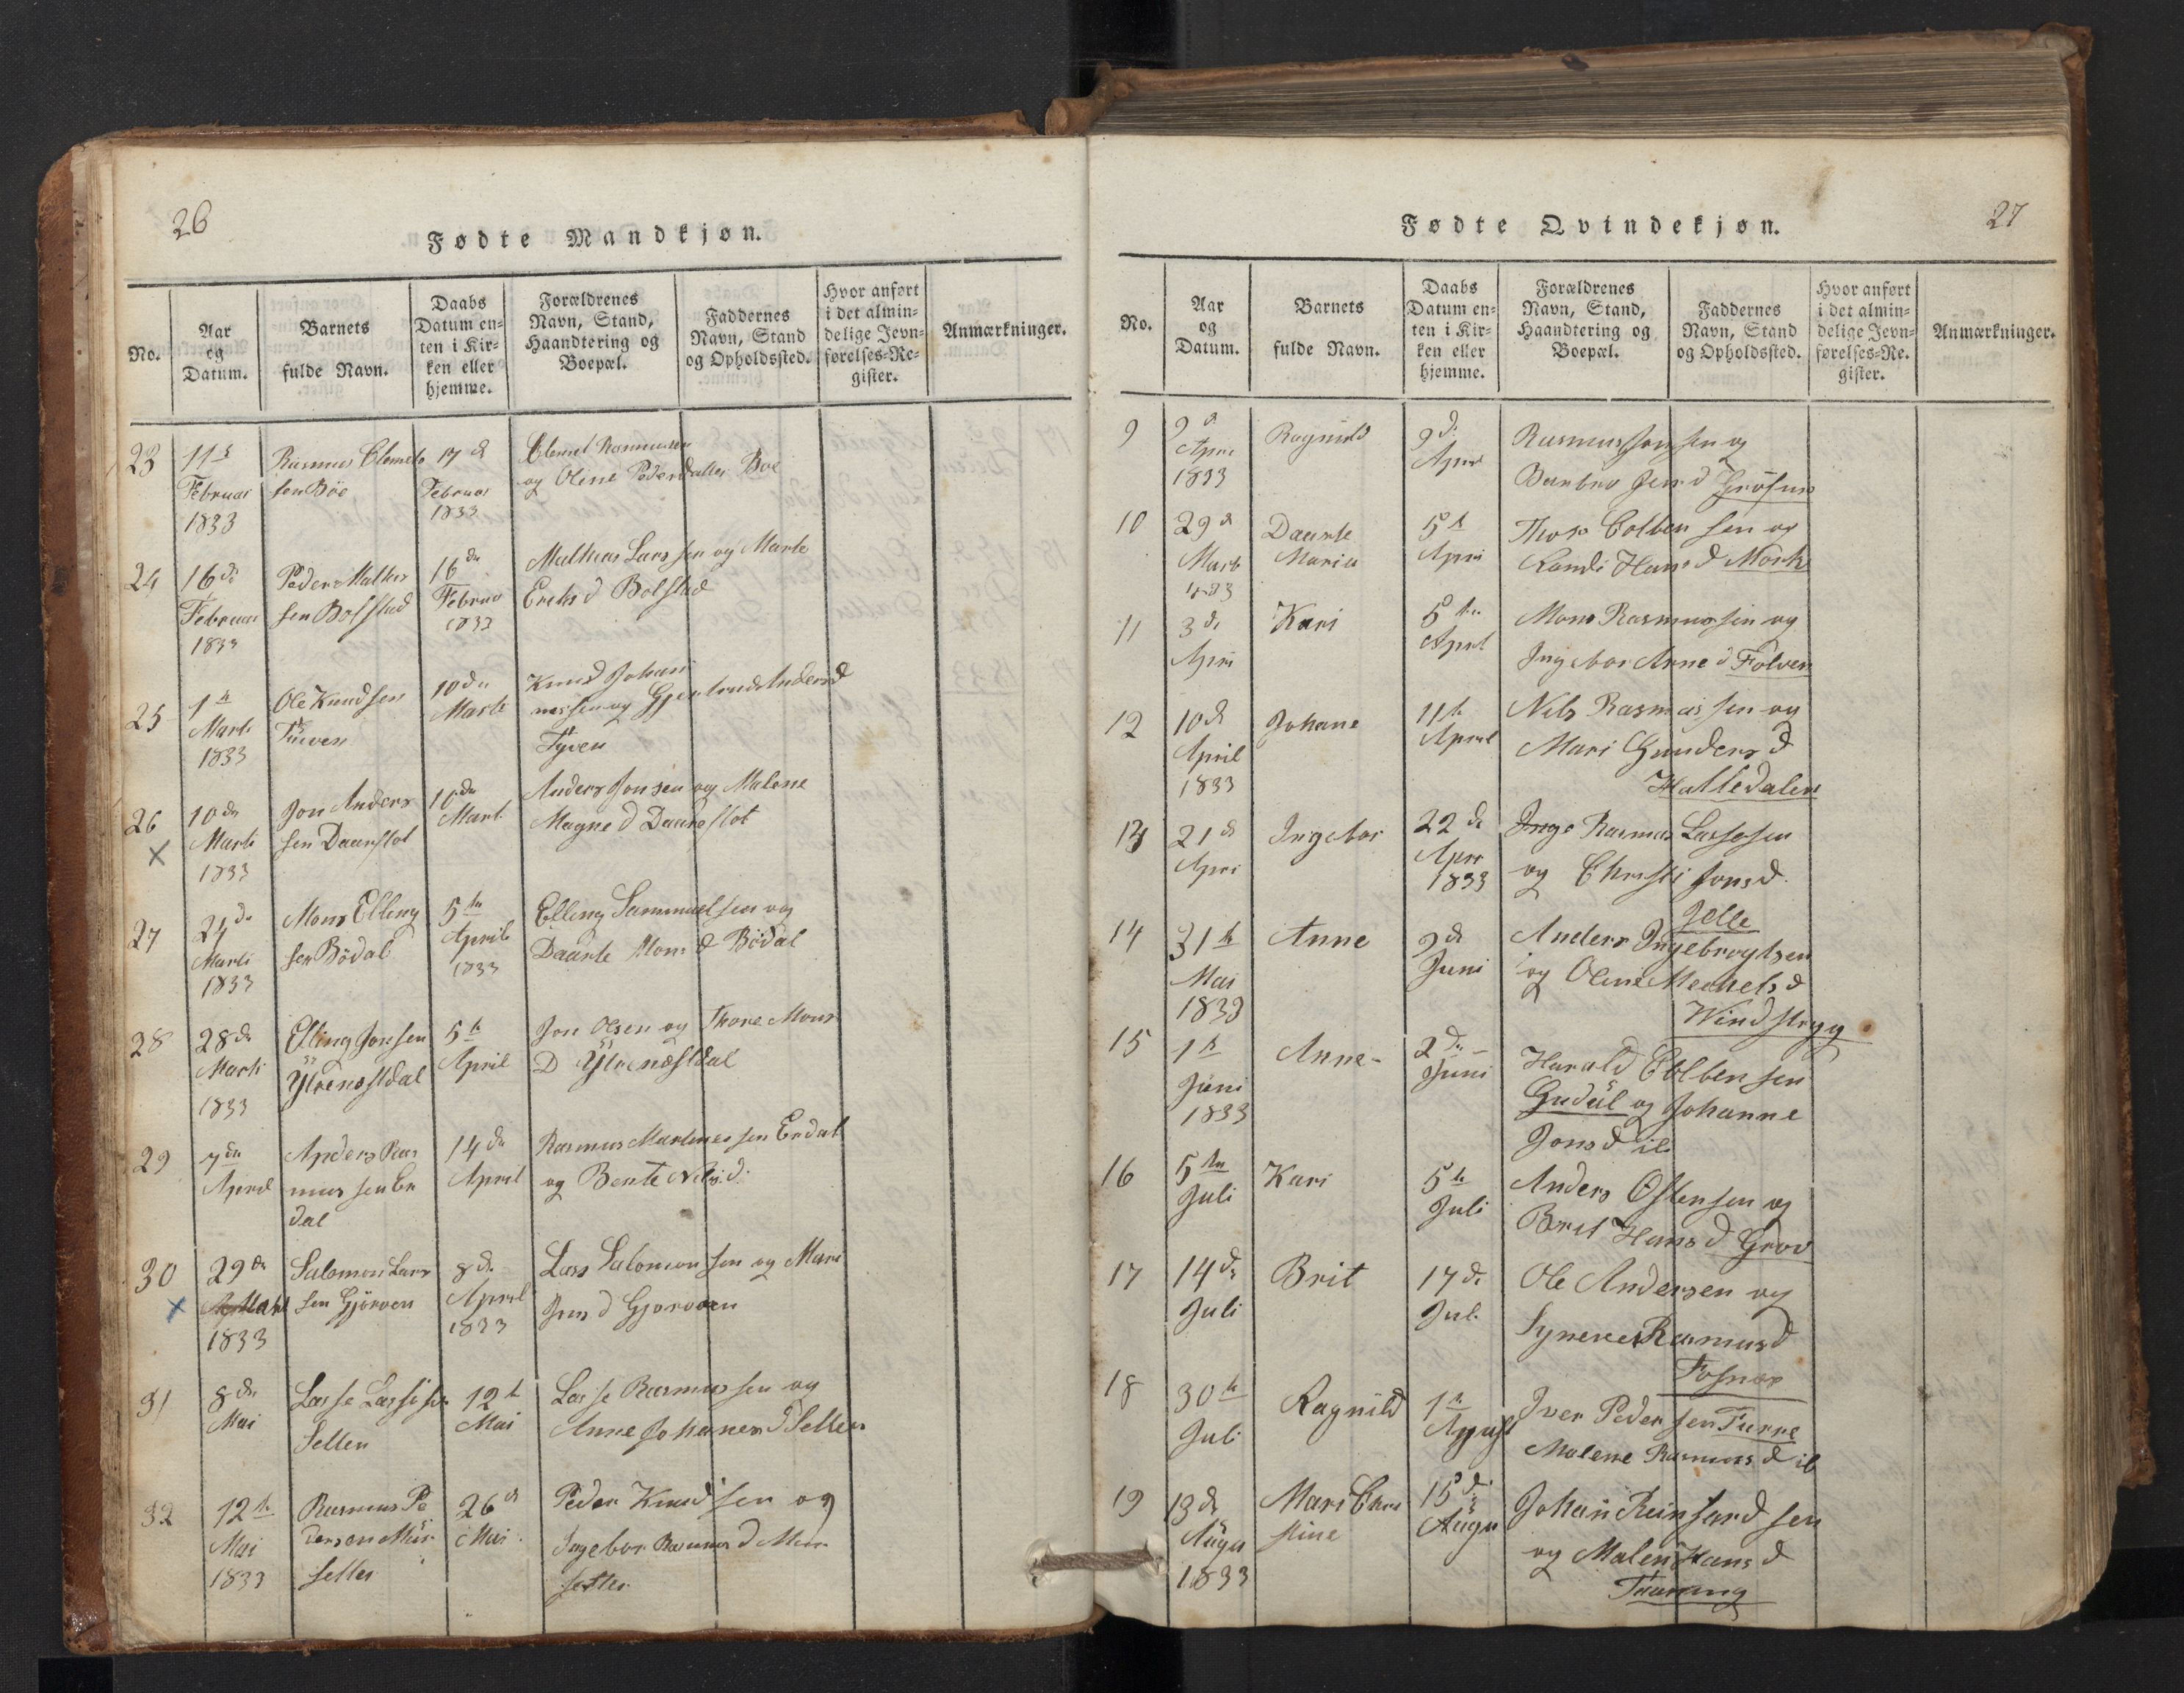 26
Fødte Mandkjøn.
No.
Aar
og
Datum.
Barnets
fulde Navn.
Daabs
Datum en-
ten i Kir-
ken eller
hjemme.
Forældrenes
Navn, Stand,
Haandtering og
Boepæl.
Faddernes
Navn, Stand
og Opholdssted.
Hvor anført
i det almin-
delige Jevn-
førelses-Re-
gister.
Anmærkninger.
23
11te
Februar
1833
Rasmus Clemets
sen Böe
17 d
Februar
1833
Clemet Rasmussen
og Oline Pedersdatter Boe
24
16de
Februar
1833
Peder Mathis
sen Bolstad
16de
Februar
1833
Mathias Larssen og Marte
Eriksd Bolstad
25
1te
Marti
1833
Ole Knudsen
10de
Marti
Knud Johan
nessen og Gjertrud Andersd
Tyven
26
10de
Marti
1833
Jon Anders
sen Daanslot
10de
Marti
Anders Jonsen og Malene
Magned Daaneslot
27
24de
Marti
1833
Mons Elling
sen Bödal
5te
April
1833
Elling Sammuelsen og
Daarte Monsd Bödal
28
28de
Marti
1833
Elling Jonsen
Ytrenæstdal
5te
April
Jon Olsen og Thore Mons
D Ytrenæstdal
29
7de
April
Anders Ras
mussen Er
dal
14de
April
Rasmus Martinessen Erdal
og Bente Nilsd.
30
29de
1833
Salomon Lars
sen Gjörven
8de
April
1833
Lars Salomonsen og Mari
Jensd Gjorven
31
8de
Mai
Lasse Lassesen
Setten
12te
Mai
Lasse Rasmussen og
Anne Johanesd Setten
32
12te
Mai
1833
Rasmus Pe
dersen Mür
setter
26 d
Mai
Peder Knudsen og
Ingebor Rasmusd Mur
setter
27
Fødte Qvindekjøn.
No.
Aar
og
Datum.
Barnets
fulde Navn.
Daabs
Datum en-
ten i Kir-
ken eller
hjemme.
Forældrenes
Navn, Stand,
Haandtering og
Boepæl.
Faddernes
Navn, Stand
og Opholdssted.
Hvor anført
i det almin-
delige Jevn-
førelses-Re-
gister.
Anmærkninger.
9
9 d
Apri
1833
Ragnild
9 d.
Apri
Rasmus Jonsen og
Barbro Jensd
10
29 d
Marti
1833
Daarte
Maria
5te
Apri
Thor Colbensen og
Randi Hansd Mork
11
3de
Apri
Kari
5te
April
Mons Rasmussen og
Ingebor Arned Folven
12
10de
April
1833
Johane
11te
April
Nils Rasmussen og
Mari Gundersd
Hatledalen
13
21 d
Apri
Ingebor
22de
Apri
1833
Rasmus Lassesen
og Christi Jonsd.
Jelle
14
31te
Mai
1833
Anne
2de
Juni
Anders Ingebregtsen
og Oline Mechelsd
Windsryg
15
1te
Juni
1833
Anne
2de
Juni
Harald Colbensen
Gudal og Johanne
Jonsd ib
16
5te
Juli
Kari
5te
Juli
Anders Ostensen og
Brit Hansd Grov
17
14de
Juli
Brit
17de
Juli
Ole Andersen og
Synneve Rasmusd
Fosnæs
18
30te
Juli
Ragnild
1te
August
Iver Pedersen Furre
Malene Rasmusd ib
19
13de
Augu
1833
Mari Chri
stine
15de
Augu
Johan Reinhardsen
og Malen Hansd
Taaning